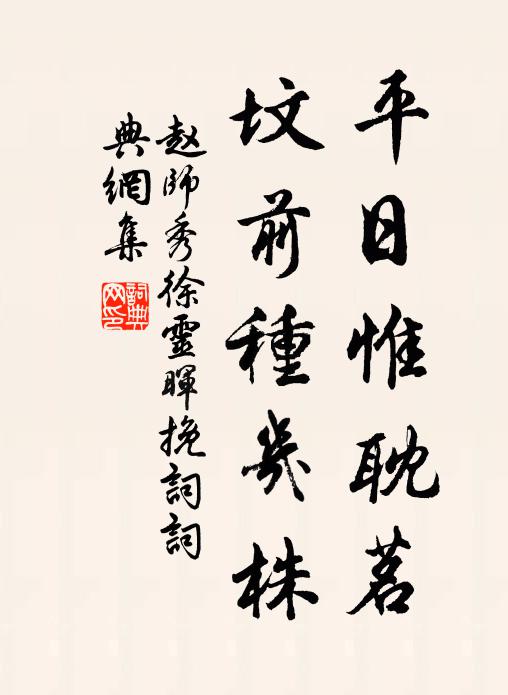 平日惟耽茗
坟前種幾株
赵師秀徐靈暉挽詞詞
典網集
詞典网印